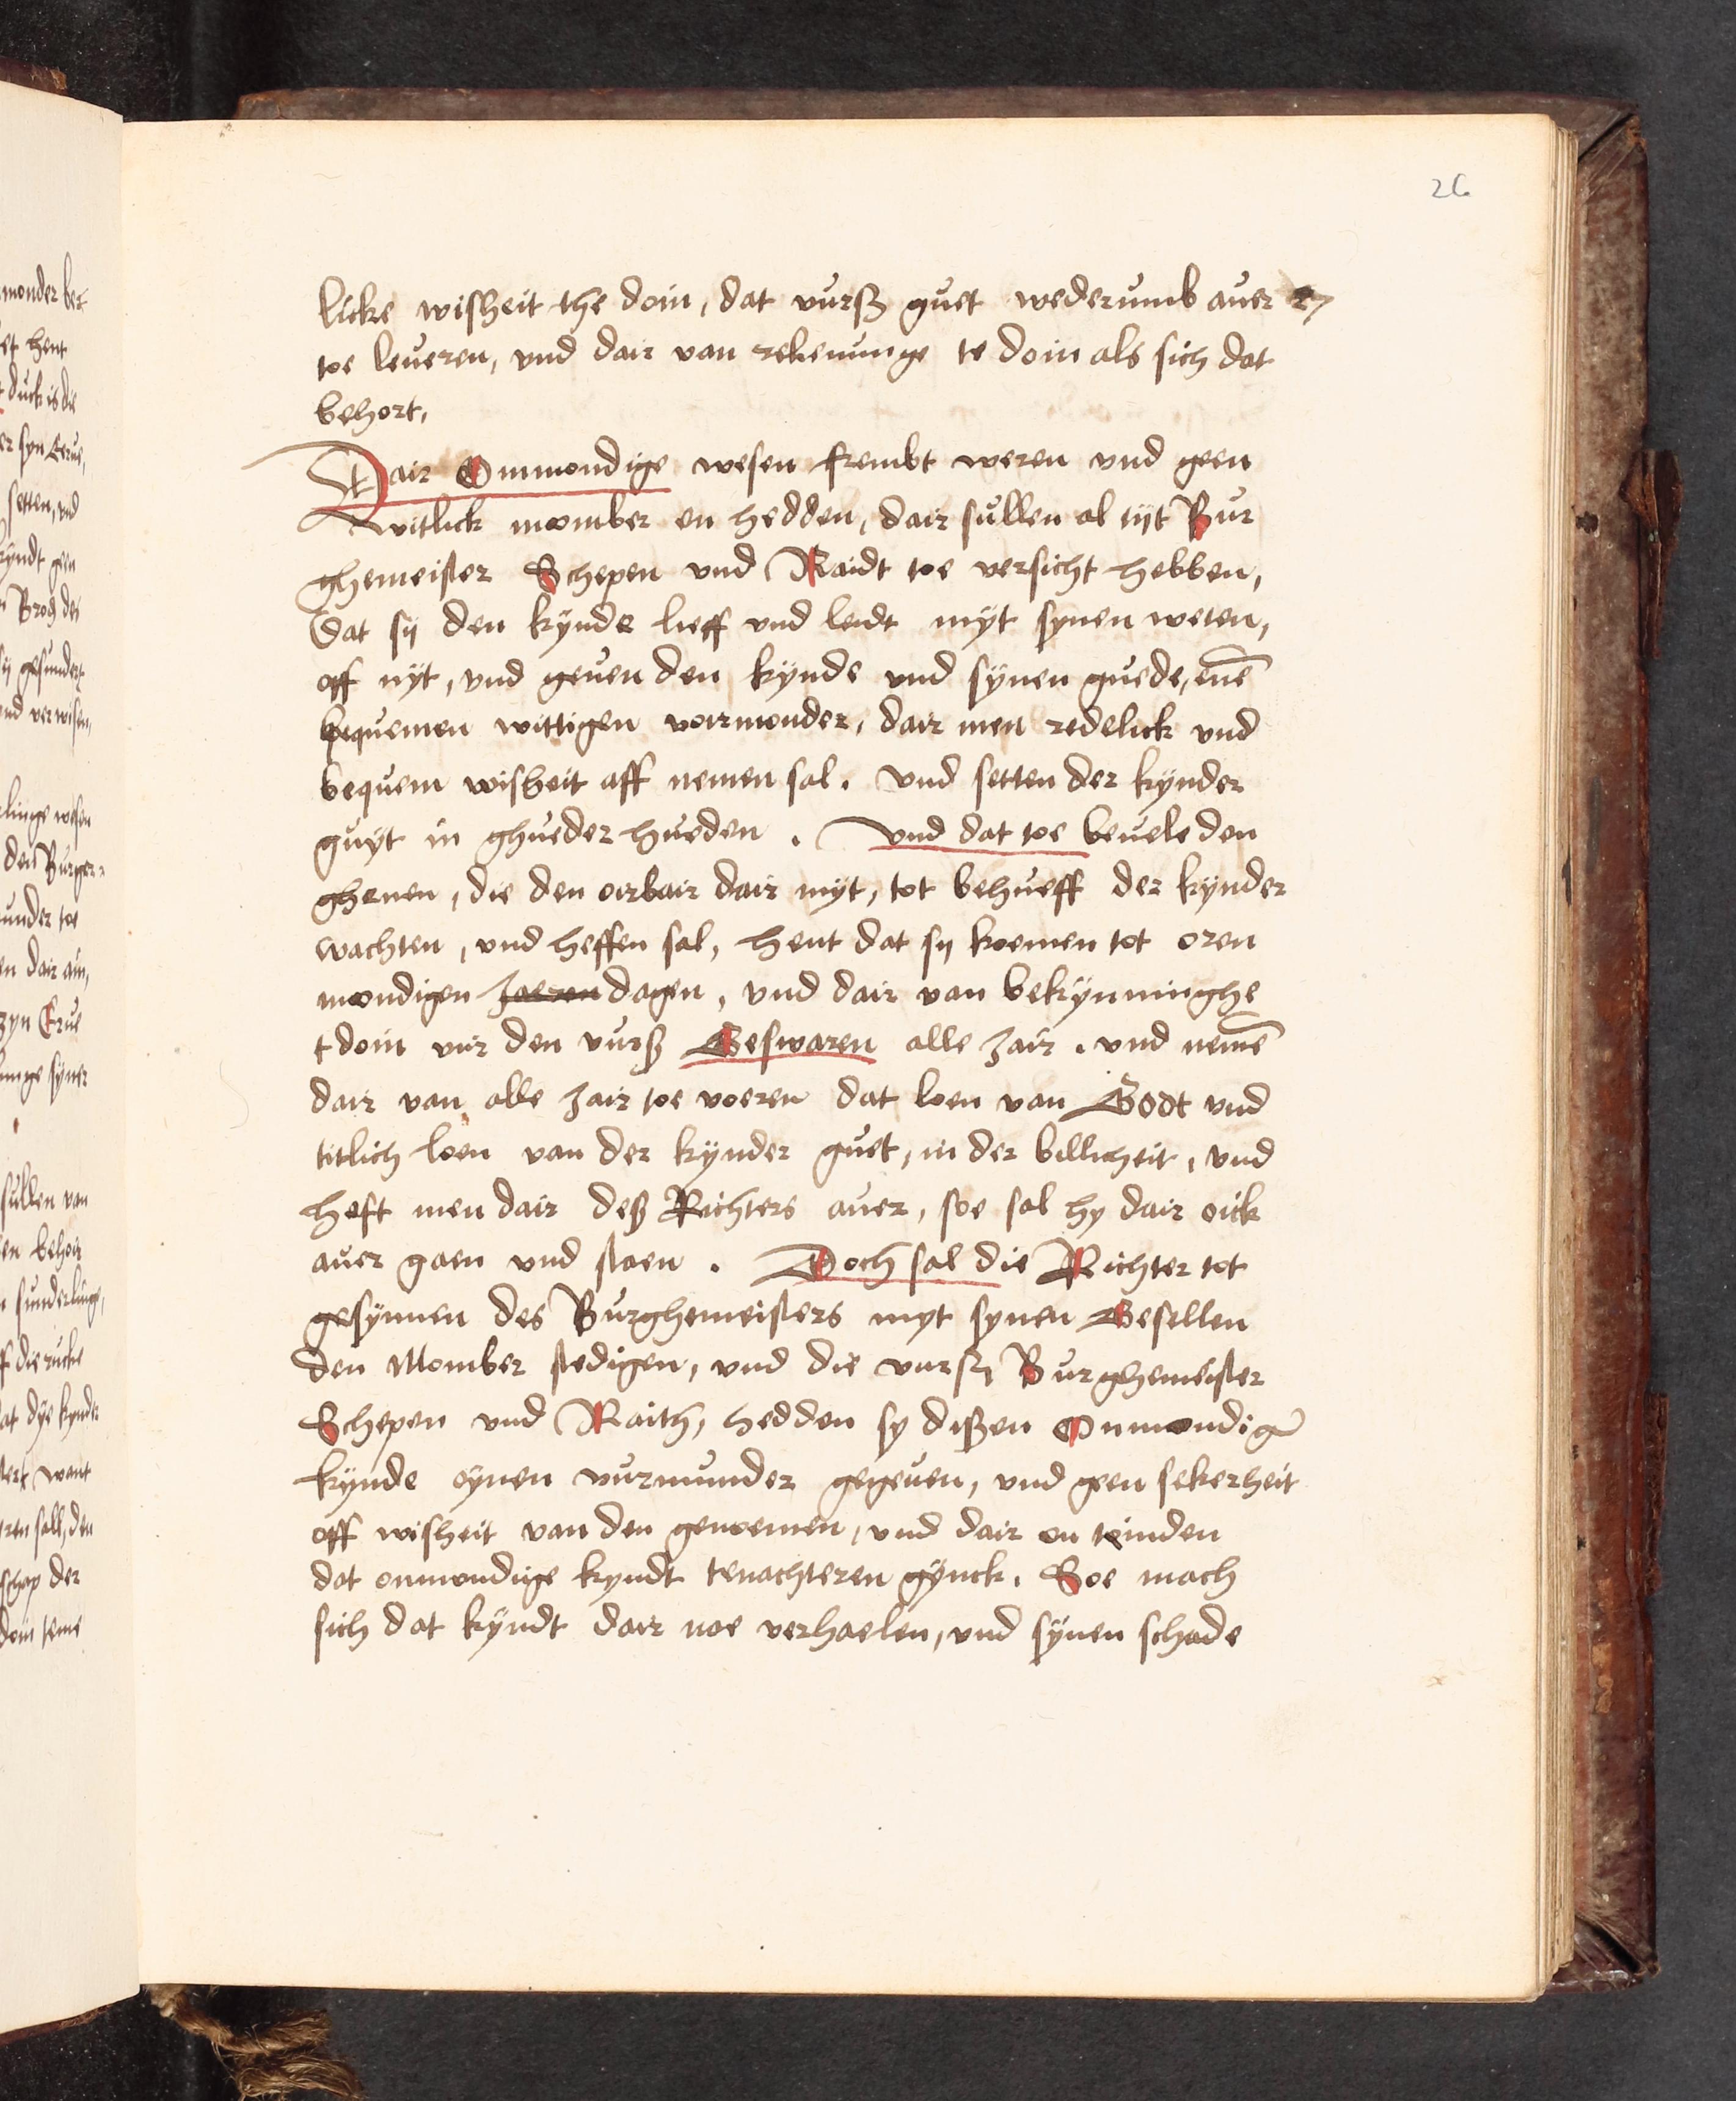 26
licke wisheit the doin, dat vurß guet wederumb auer 27
toe leueren, vnd dair van rekenunge te doin als sich dat
behort,
Dair Onmondige wesen frembt weren vnd geen
witlick momber en hedden, dair sullen al tijt Bur
ghemeister Schepen vnd Raidt toe versicht hebben,
Dat sij den kÿnde lieff vnd leidt mÿt sÿnen weten,
off nÿt, vnd geuen den kÿnde vnd sÿnen guede, enē
bequemen wittigen voirmonder, dair men redelick vnd
bequem wisheit aff nemen sal. vnd setten der kÿnder
guÿt in ghueder hueden. vnd dat toe beuele den
ghenen, die den oirbair dair mÿt, tot behueff der kÿnder
wachten, vnd heffen sal, hent dat sij koemen tot oren
mondigen Jaeren dagen, vnd dair van bekÿnninghe
t doin vur den vurß Geswaren alle Jair. vnd nemē
dair van alle Jair toe voeren dat loen van Godt vnd
titlich loen van der kÿnder guet, in der billicheit, vnd
heft men dair deß Richters auer, soe sal hy dair oick
auer gaen vnd staen. Doch sal die Richter tot
gesÿnnen des Burghemeisters myt synen Gesellen
den Momber stedigen, vnd die vurß Burghemeister
Schepen vnd Raith, hedden sy dißen Onmondigē
kÿnde eÿnen vurmunder gegeuen, vnd geen sekerheit
off wisheit van den genoemen, vnd dair en teinden
dat onmondige kyndt tenachteren gÿnck. Soe mach
sich dat kÿndt dair noe verhaelen, vnd sÿnen schade